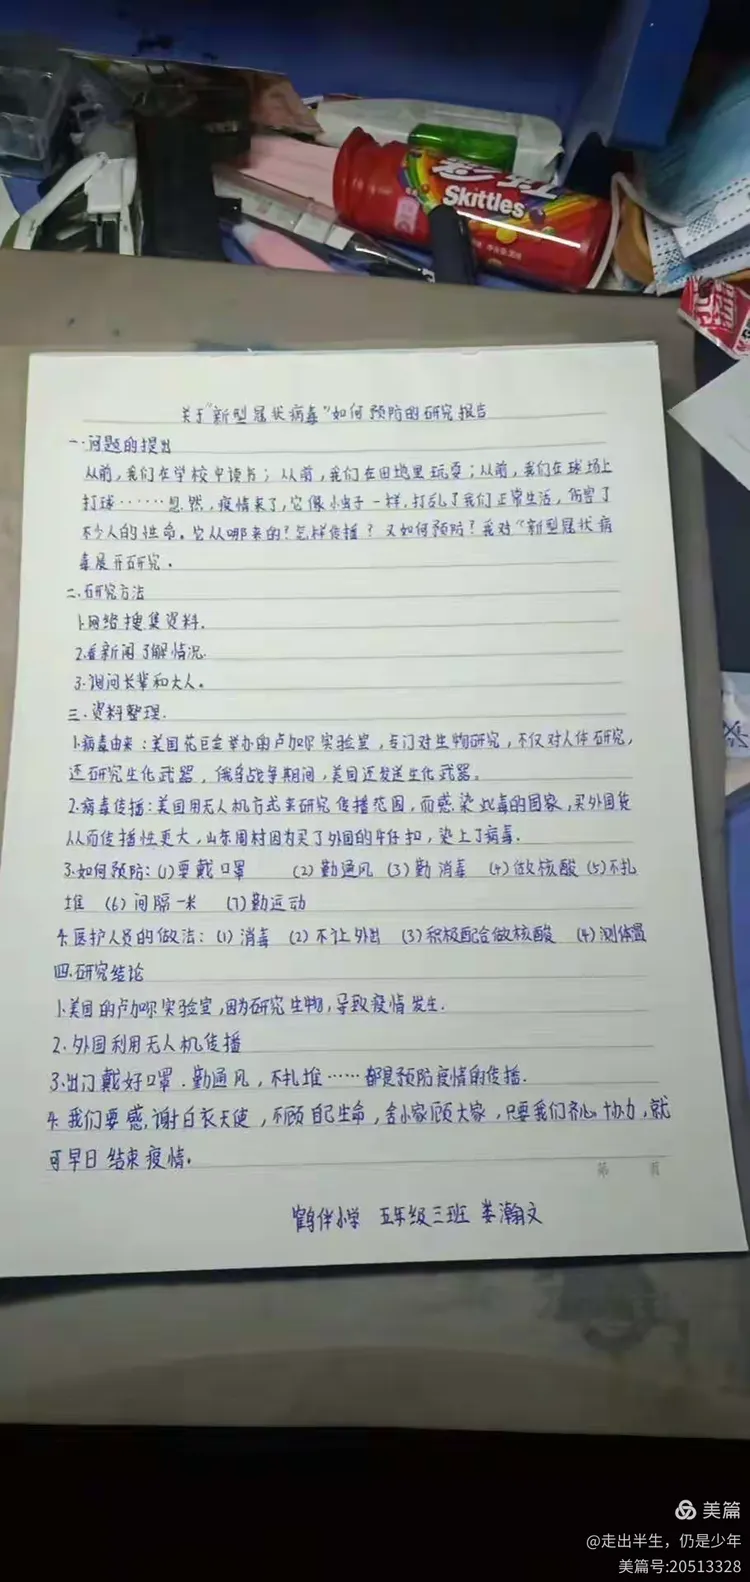 彩虹
Skittles
关于“新型冠状病毒”如何预防的研究报告
一.问题的提出
从前,我们在学校中读书；从前,我们在田地里玩耍；从前,我们在球场上
打球······忽然,疫情来了,它像小虫子一样,打乱了我们正常生活,伤害了
不少人的性命。它从哪来的？怎样传播？又如何预防？我对“新型冠状病
毒展开研究。
二.研究方法
1.网络搜集资料.
2.看新闻了解情况.
3.询问长辈和大人。
三.资料整理.
1.病毒由来：美国花巨金举办的卢加尔实验室,专门对生物研究,不仅对人体研究,
还研究生化武器,俄乌战争期间,美国还发送生化武器。
2.病毒传播：美国用无人机方式来研究传播范围,而感染此毒的国家,买外国货
从而传播性更大,山东周村因为买了外国的牛仔扣,染上了病毒.
3.如何预防：(1)要戴口罩 (2)勤通风 (3)勤消毒 (4)做核酸 (5)不扎
堆 (6)间隔一米 (7)勤运动
4.医护人员的做法：(1)消毒 (2)不让外出 (3)积极配合做核酸 (4)测体温
四.研究结论
1.美国的卢加尔实验室,因为研究生物,导致疫情发生.
2.外国利用无人机传播
3.出门戴好口罩.勤通风,不扎堆······都是预防疫情的传播.
4.我们要感谢白衣天使,不顾自己生命,舍小家顾大家,只要我们齐心协力,就
可早日结束疫情。
第 页
鹤伴小学 五年级三班 娄瀚文
美篇
@走出半生，仍是少年
美篇号:20513328